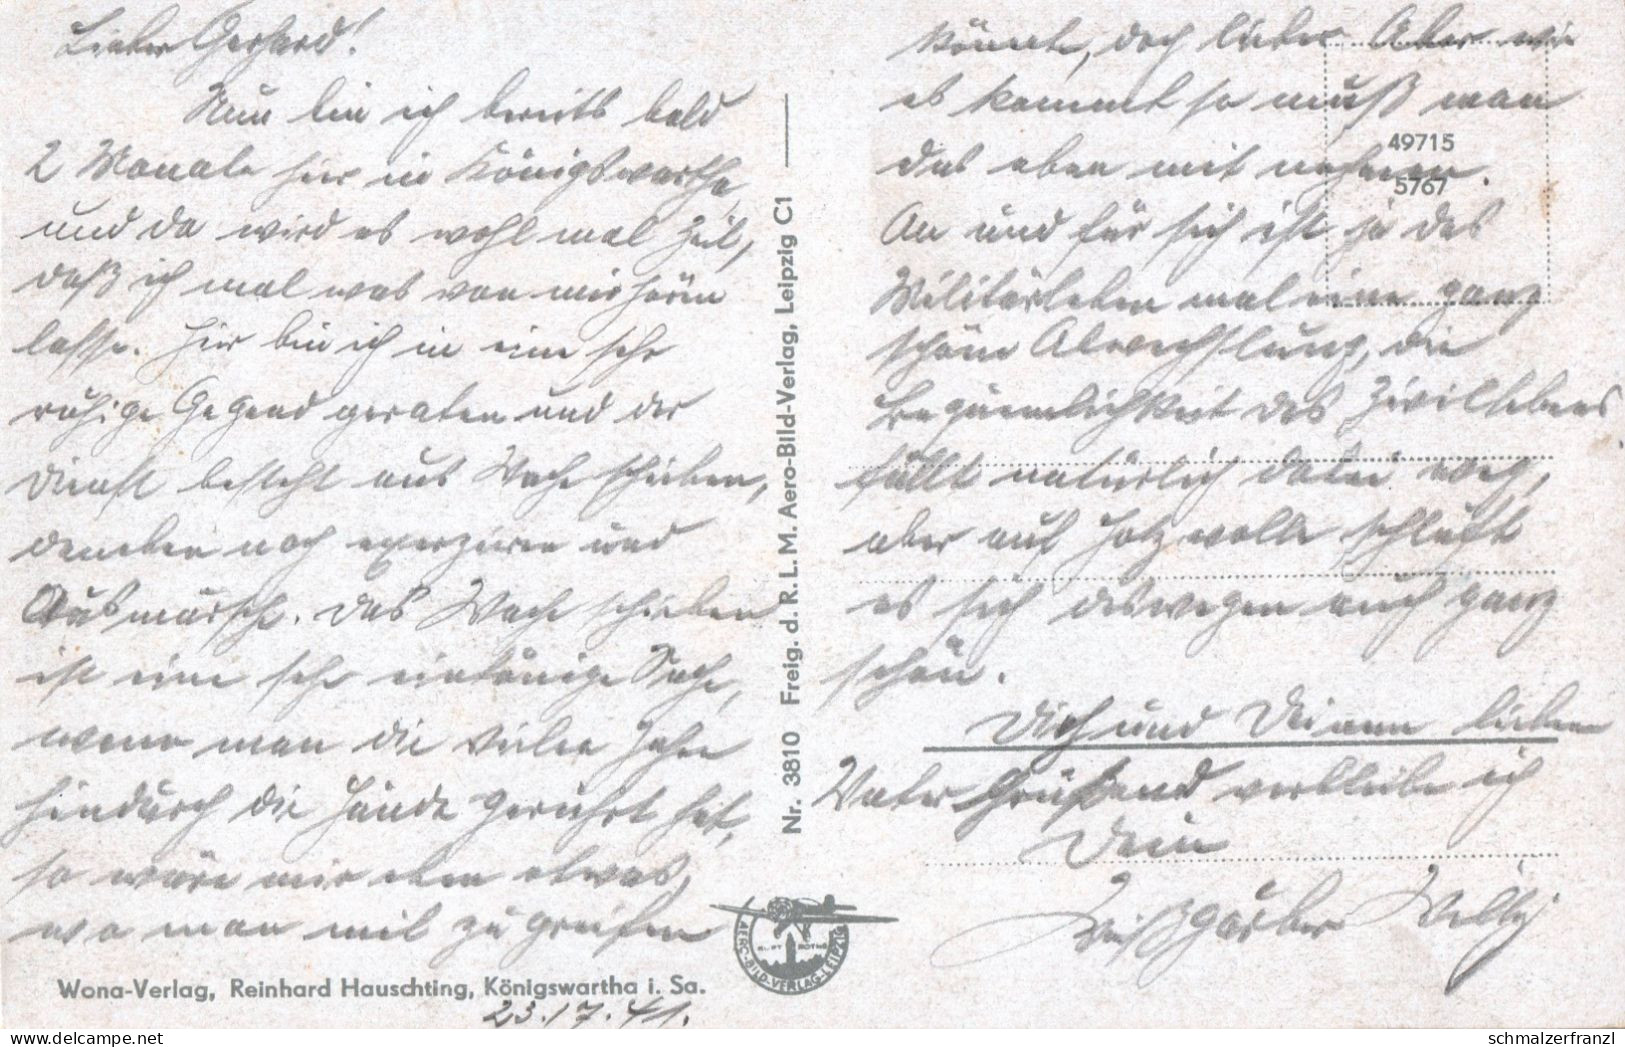 Lieber Gerhard!
Nun bin ich bereits bald
2 Monate hier in Königswartha,
und da wird es wohl mal Zeit,
daß ich mal was von mir hören
lasse. Hier bin ich in eine sehr
ruhige Gegend geraten und der
Dienst besteht aus Wache schieben,
daneben noch exerzieren und
Ausmärsche. Das Wache schieben
ist eine sehr eintönige Sache,
wenn man die vielen Jahre
hindurch die Hände gerührt hat,
so wäre mir eben etwas,
wo man mit zu greifen
könnte, doch lieber. Aber wie
es kommt so muß man
das eben mit nehmen.
An und für sich ist ja das
Militärleben mal eine ganz
schöne Abwechslung, die
Bequemlichkeit des Zivillebens
fällt natürlich dabei weg,
aber auf Holzwolle schläft
es sich deswegen auch ganz
schön.
Dich und Deinen lieben
Vater Grüßend verbleibe ich
Dein
Weißgärber Willy
49715
5767
Nr. 3810 Freig. d. R. L. M. Aero-Bild-Verlag, Leipzig C1
AERO-BILD-VERLAG-LEIPZIG
Wona-Verlag, Reinhard Hauschting, Königswartha i. Sa.
23.17.41.
schmalzerfranzl